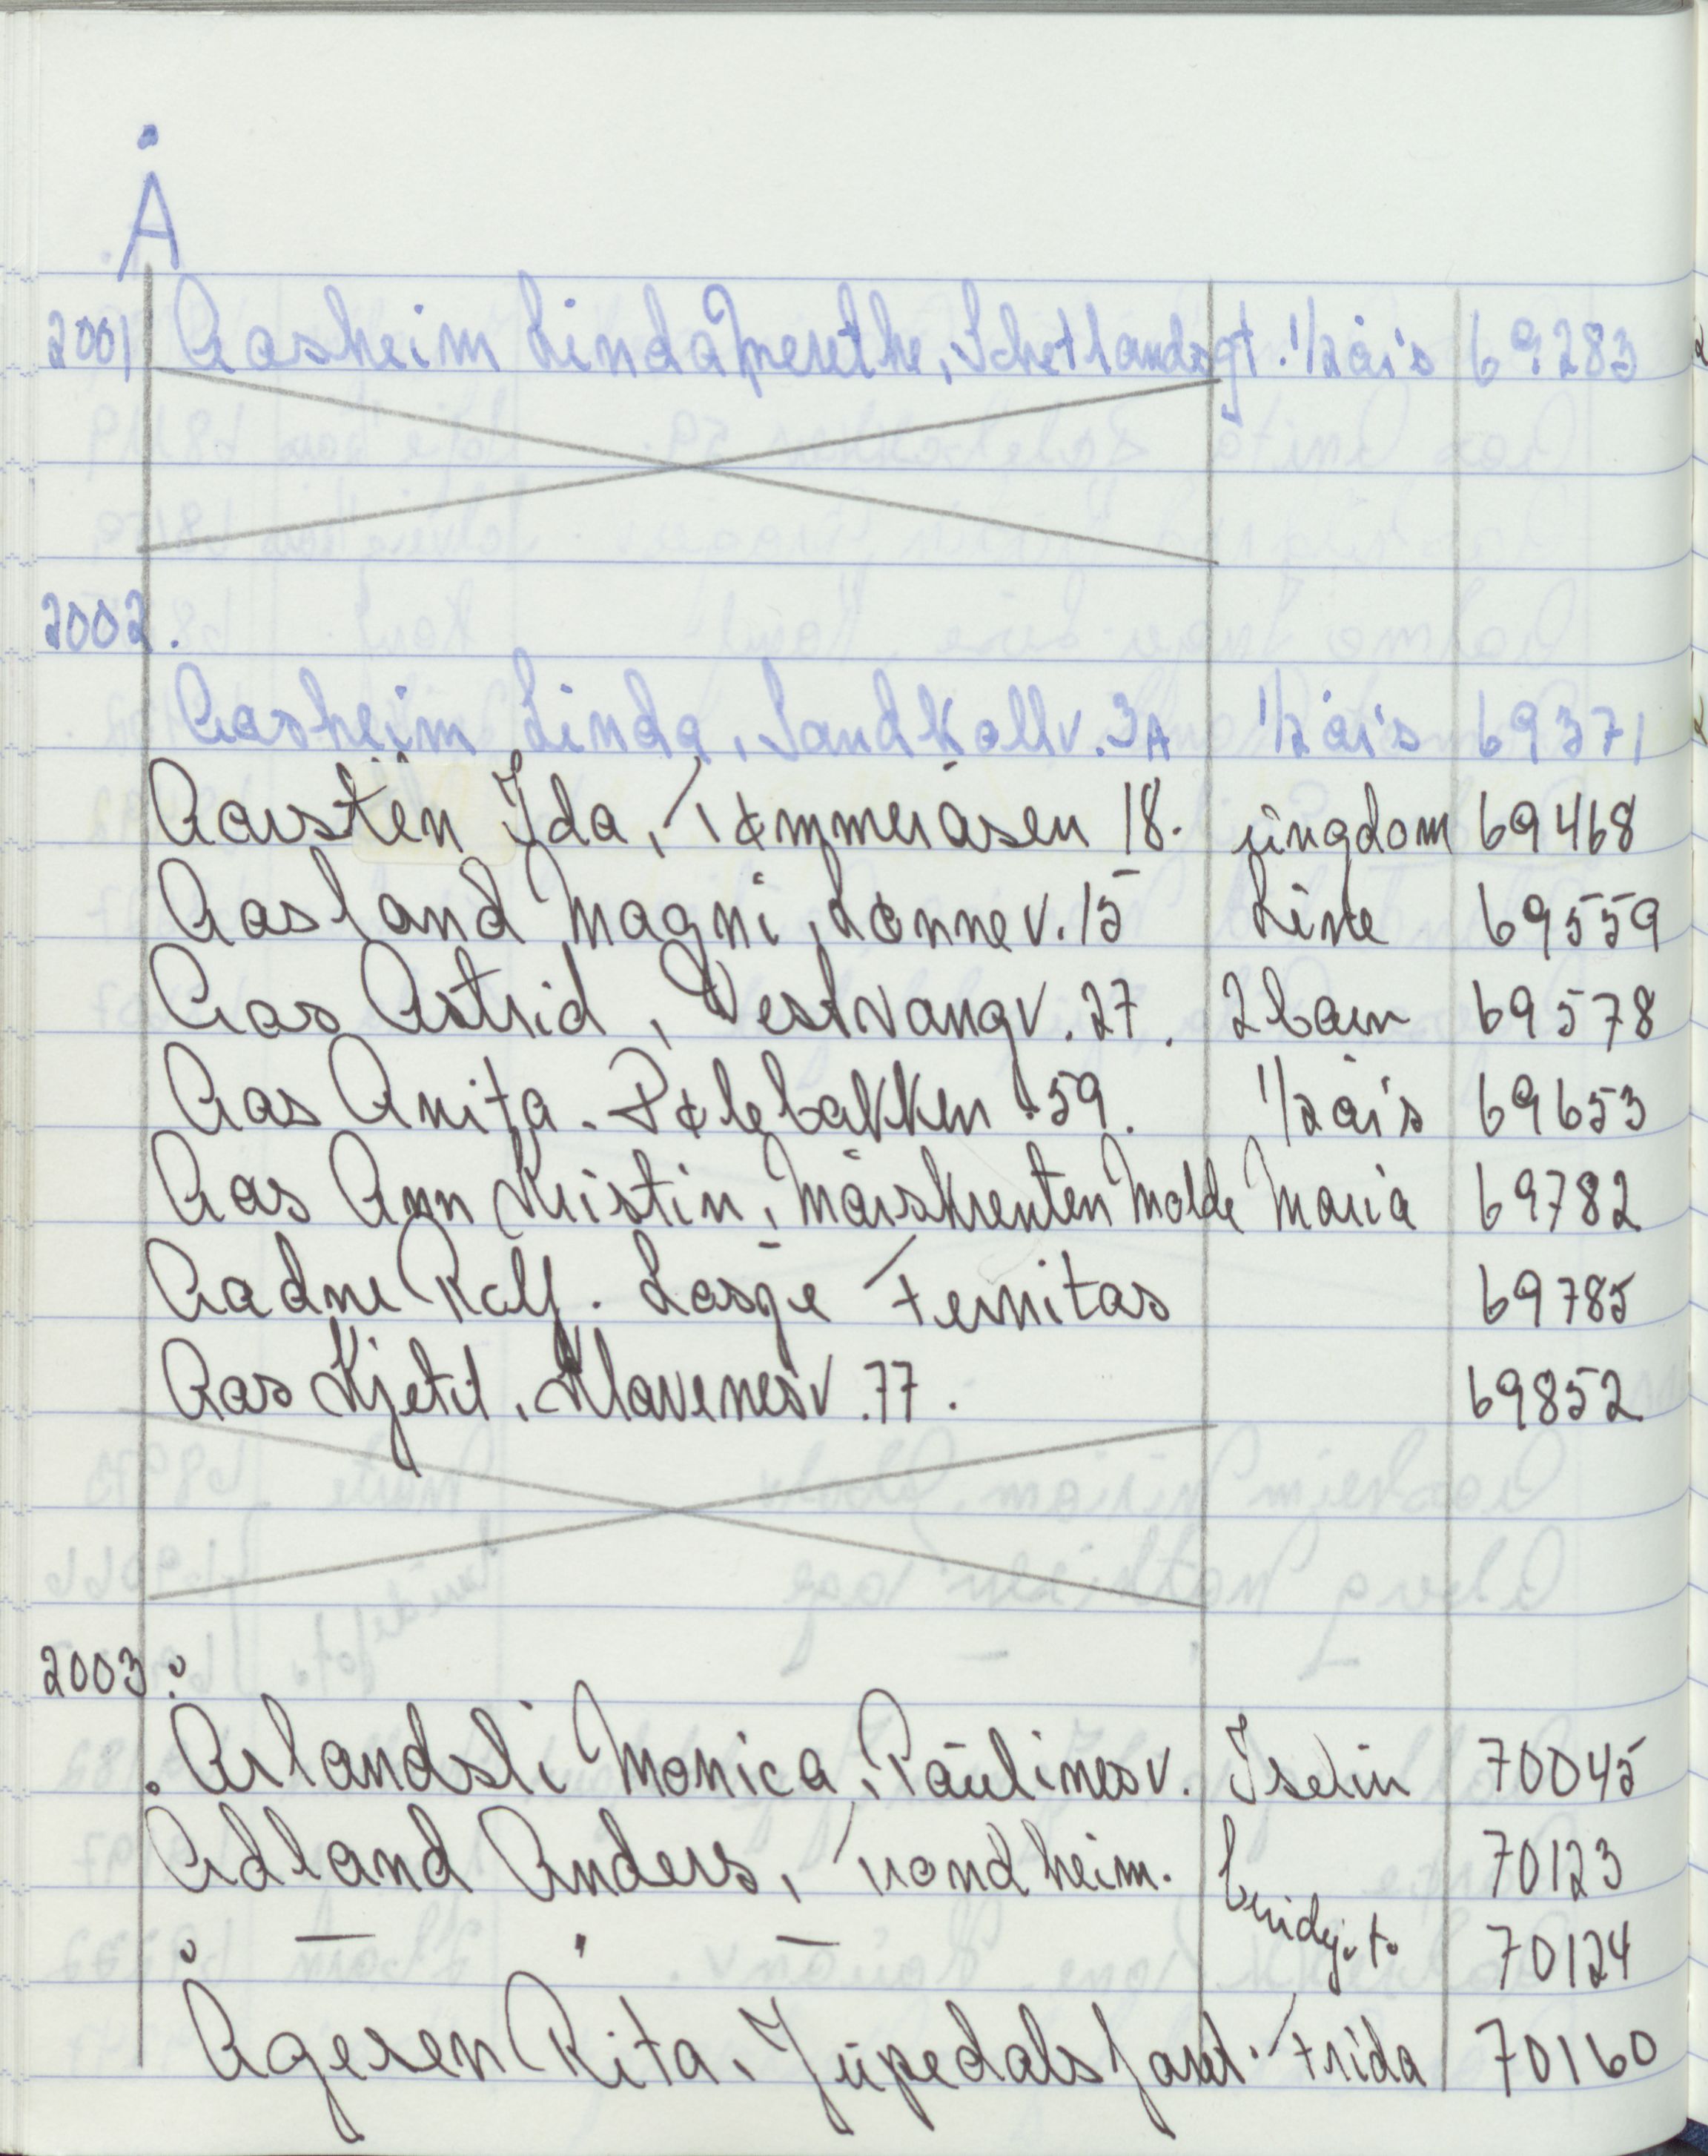 Å
2001 Aasheim Linda Merethe, Schetlandsgt. 1/2 års 69283
2002.
Aasheim Linda, Sandkollv. 3A 1/2 års 69371
Aarstein Ida, Tømmeråsen 18. ungdom 69468
Aasland Magni, Lønnev. 15 Line 69559
Aas Astrid, Vestvangv. 27. 2 barn 69578
Aas Anita. Pølebakken 59. 1/2 års 69653
Aas Ann Kristin, Mårskrenten Molde Maria 69782
Aadne Rolf. Losje Fernitas 69785
Aas Kjetil, Klavenesv. 77. 69852
2003
Årlandsli Monica, Paulinesv. Iselin 70045
Ådland Anders, Trondheim. brudef. 70123
— " — 70124
Ågesen Rita, Jupedals Frida 70160